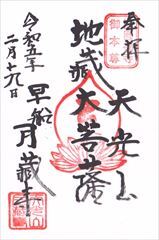 奉拝
天光山
地蔵大菩薩
早船
月蔵寺
令和五年
二月十九日